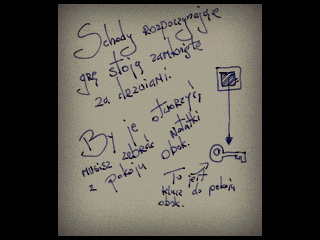 Schody rozpoczynające
grę stoją zamknięte
za drzwiami.
By je otworzyć,
musisz zebrać notatki
z pokoju obok.
To jest
klucz do pokoju
obok.